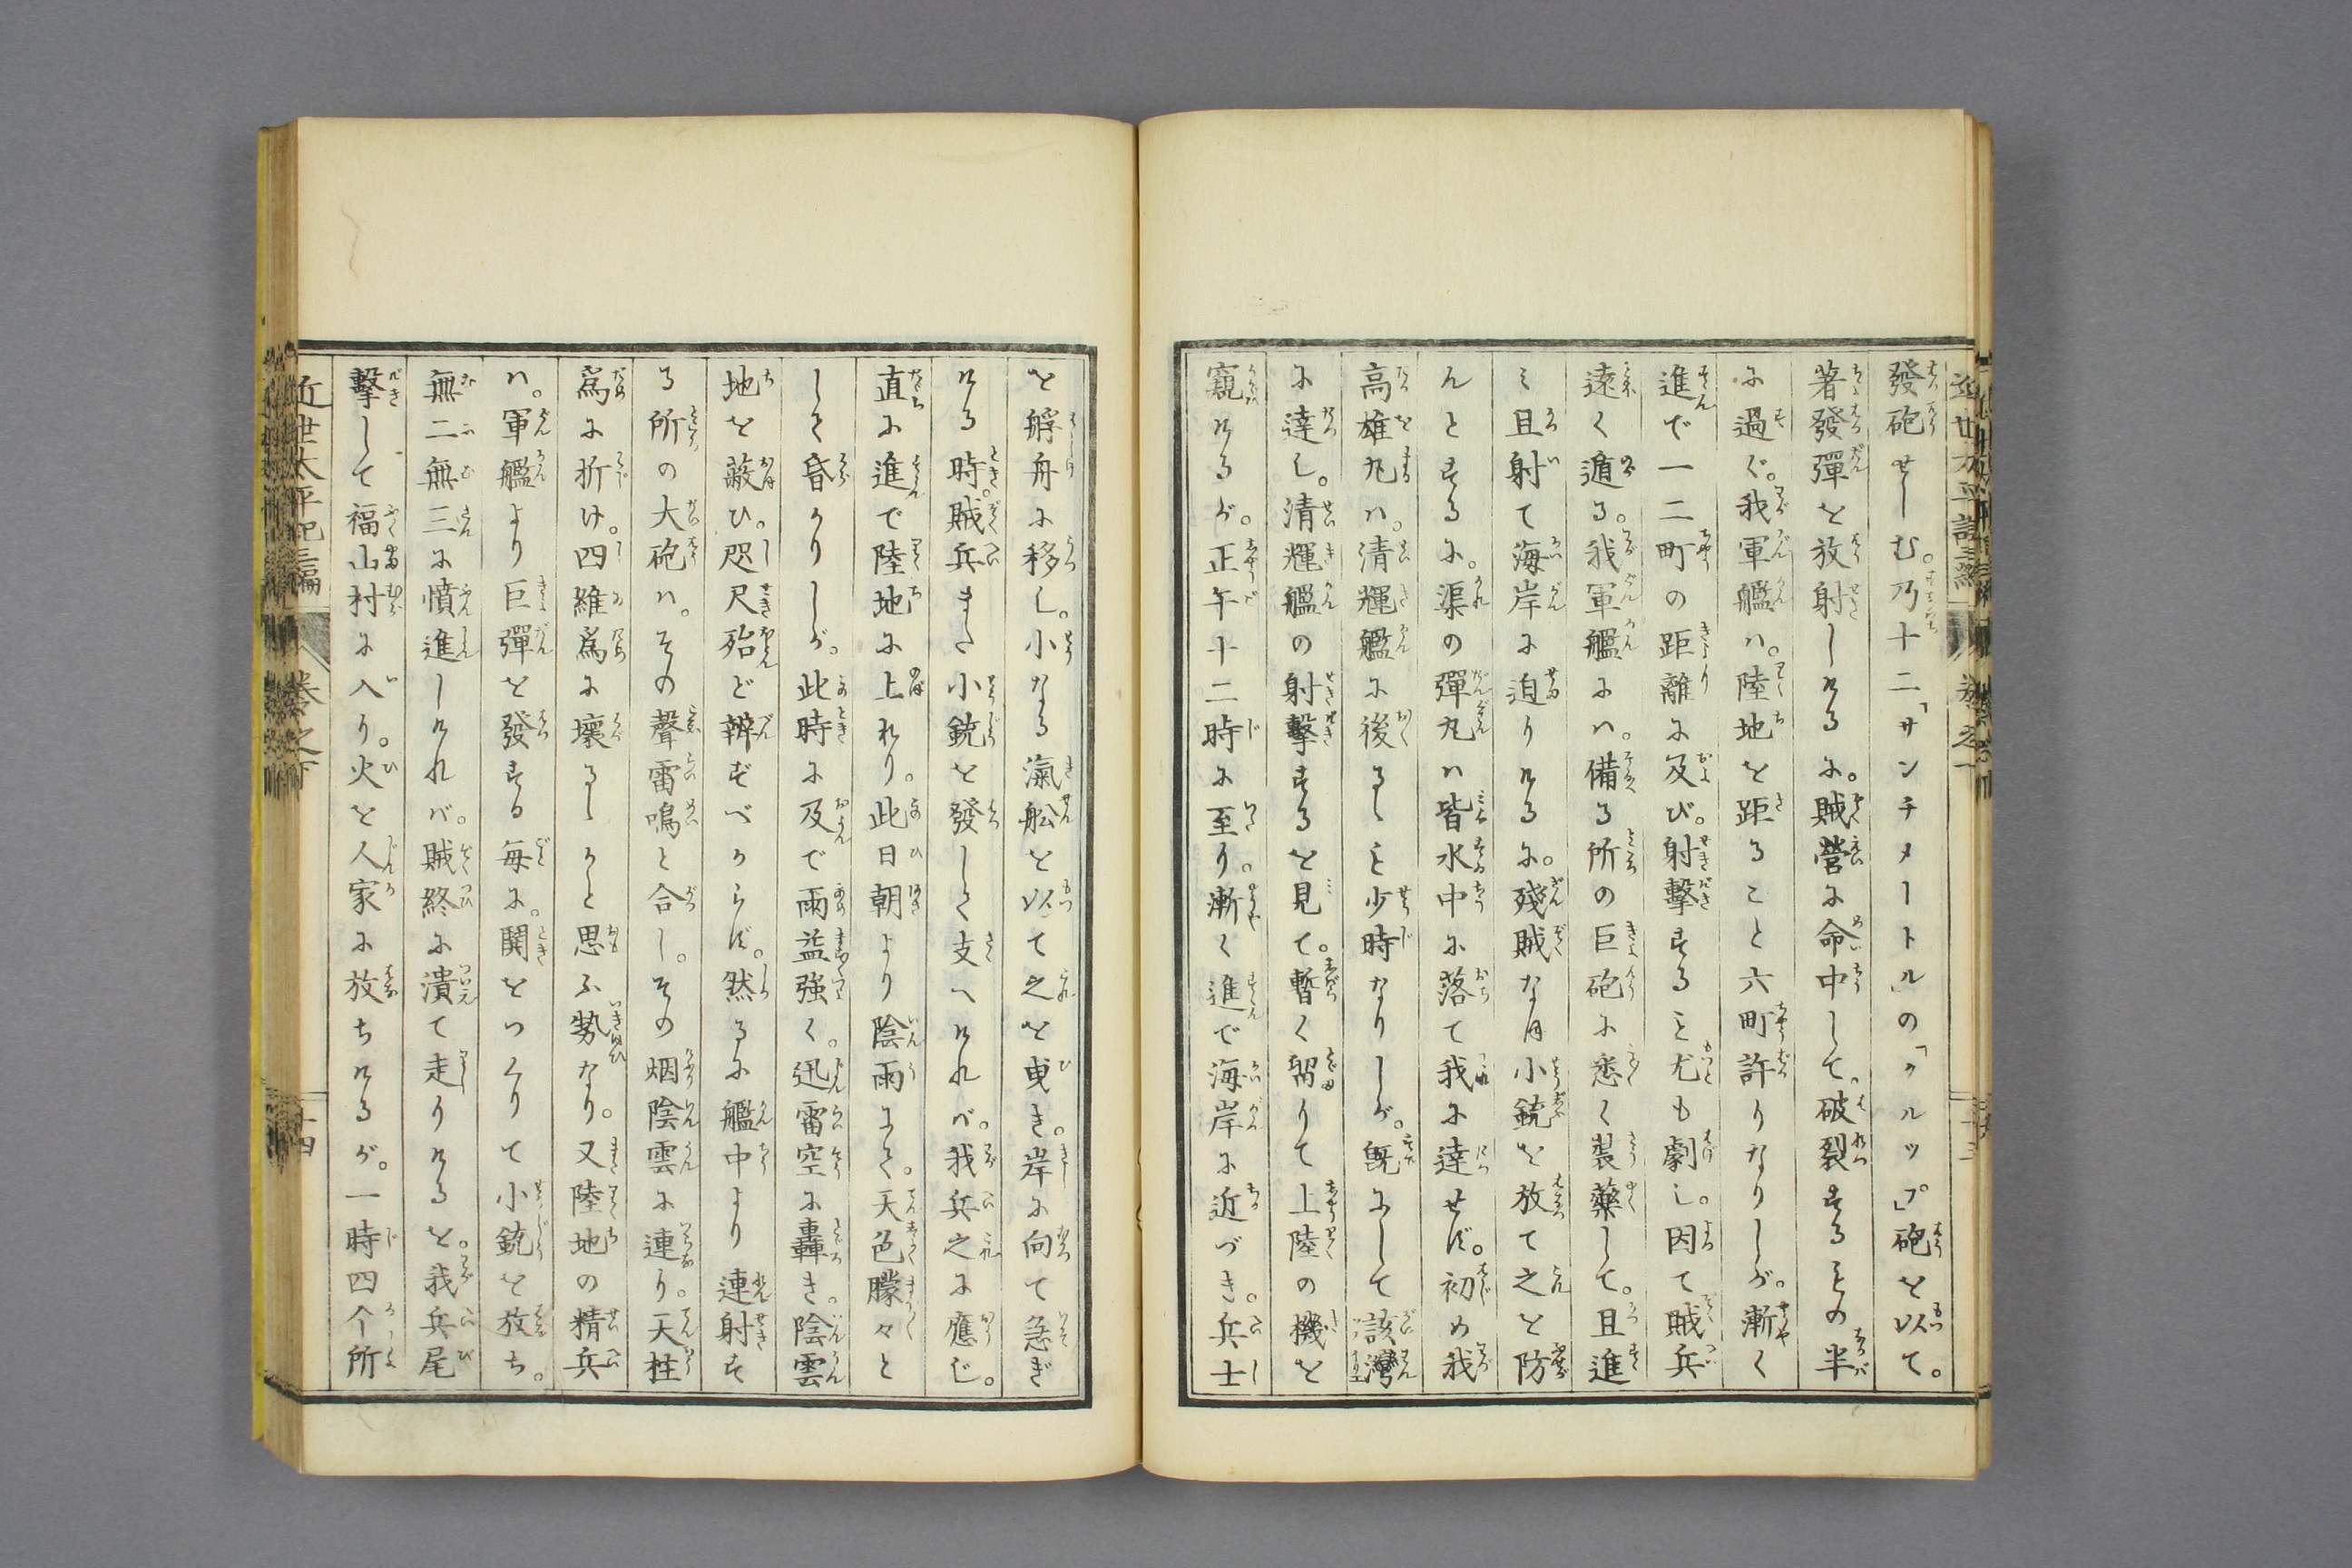 發砲せしむ。乃十二「サンチメートル」の「クルップ」砲を以て。
著發彈を放射しける に。賊營に命中して。破裂するもの半
に過ぐ。我軍艦ハ。陸地を距ること六町許りなりしが。漸く
進で一二町の距離に及び。射擊すること尤も劇し。因て賊兵
遠く遁る。我軍艦にハ。備る所の巨砲に悉く裝藥して。且進
ミ且射て海岸に迫りける に。殘賊な月小銃を放て之を防
んとするに。渠の彈丸ハ皆水中に落て我に達せず。初め我
高雄丸ハ。清輝艦に後るゝこと少時なりしが。既にして該灣
に達し。清輝艦の射擊するを見て。暫く留りて上陸の機を
窺けるが。正午十二時に至り。漸く進で海岸に近づき。兵士
を艀舟に移し。小なる滊舩を以て之を曳き。岸に向て急ぎ
ける時。賊兵また小銃を發して支へければ。我兵之に應じ。
直に進で陸地に上れり。此日朝より陰雨にて。天色朦々と
して昏かりしが。此時に及で雨益強く。迅雷空に轟き。陰雲
地を蔽ひ。咫尺殆ど辨ずべからず。然るに艦中より連射す
る所の大砲ハ。その聲雷鳴と合し。その烟陰雲に連り。天柱
爲に折け。四維爲に壞るゝかと思ふ勢なり。又陸地の精兵
ハ。軍艦より巨彈を發する毎に。鬨をつくりて小銃を放ち。
無二無三に憤進しければ。賊終に潰て走りけるを。我兵尾
擊して福山村に入り。火を人家に放ちけるが。一時四个所
近世太平記三編 卷之下 十四